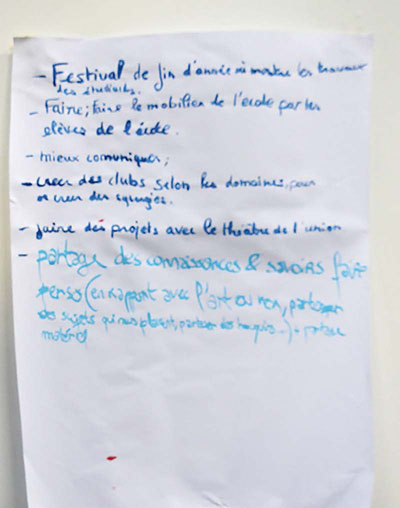 - Festival de fin d'année où montrer les travaux
des étudiants.
- Faire; faire le mobilier de l'école par les
élèves de l'école.
- mieux comuniquer;
- creer des clubs selon les domaines, pour
creer des synergies.
- faire des projets avec le théâtre de l'union
- partage des connaissances & savoirs faire
perso (en rapport avec l'art ou non, partager
des sujets qui nous plaisent, partager des bouquins...) + partage
matériel